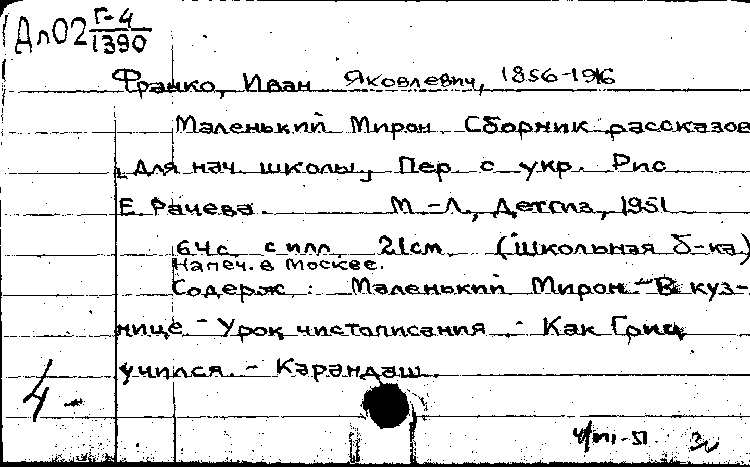 Дл02 Г-4/1390
Франко, Иван Яковлевич, 1856-1916
Маленький Мирон. Сборник рассказов
[Для нач. школы] Пер. с укр. Рис.
Е. Рачева. М.-Л., Детгиз, 1951
64с. с илл. 21см. (Школьная б-ка)
Напеч. в Москве.
Содерж.: Маленький Мирон.-В куз-
нице.-Урок чистописания.-Как Гриц
учился.-Карандаш.
4-